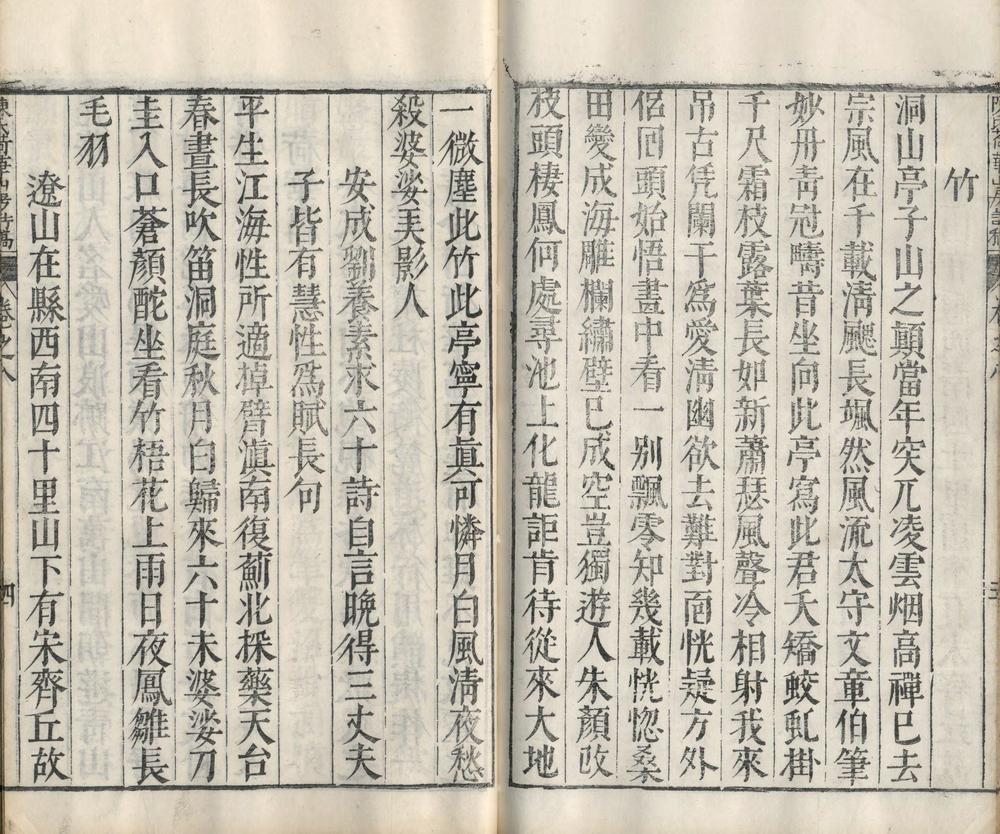 竹
洞山亭子山之顛當年突兀凌雲烟高禪已去
宗風在千載淸飈長颯然風流太守文章伯筆
妙丹靑冠疇昔坐向此亭寫此君夭矯蛟虬掛
千尺霜枝露葉長如新蕭瑟風聲冷相射我來
吊古凭闌干爲愛淸幽欲去難對面恍疑方外
侶回頭始悟畫中看一別飄零知幾載恍惚桑
田變成海雕欄繡壁已成空豈獨遊人朱顏改
枝頭棲鳳何處尋池上化龍詎肯待從來大地
一微塵此竹此亭寧有眞可憐月白風淸夜愁
殺婆娑美影人
安成劉養素來六十詩自言晩得三丈夫
子皆有慧性爲賦長句
平生江海性所適掉臂滇南復薊北採藥天台
春晝長吹笛洞庭秋月白歸來六十未婆娑刀
圭入口蒼顏酡坐看竹梧花上雨日夜鳳雛長
毛羽
遼山在縣西南四十里山下有宋齊丘故
四